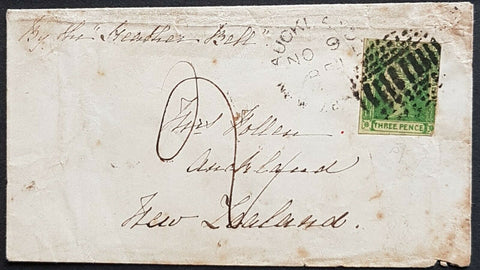 By the "Heather Bell".
AUCKL
NO 9
THREE PENCE
Mrs Pollen
Auckland
New Zealand.